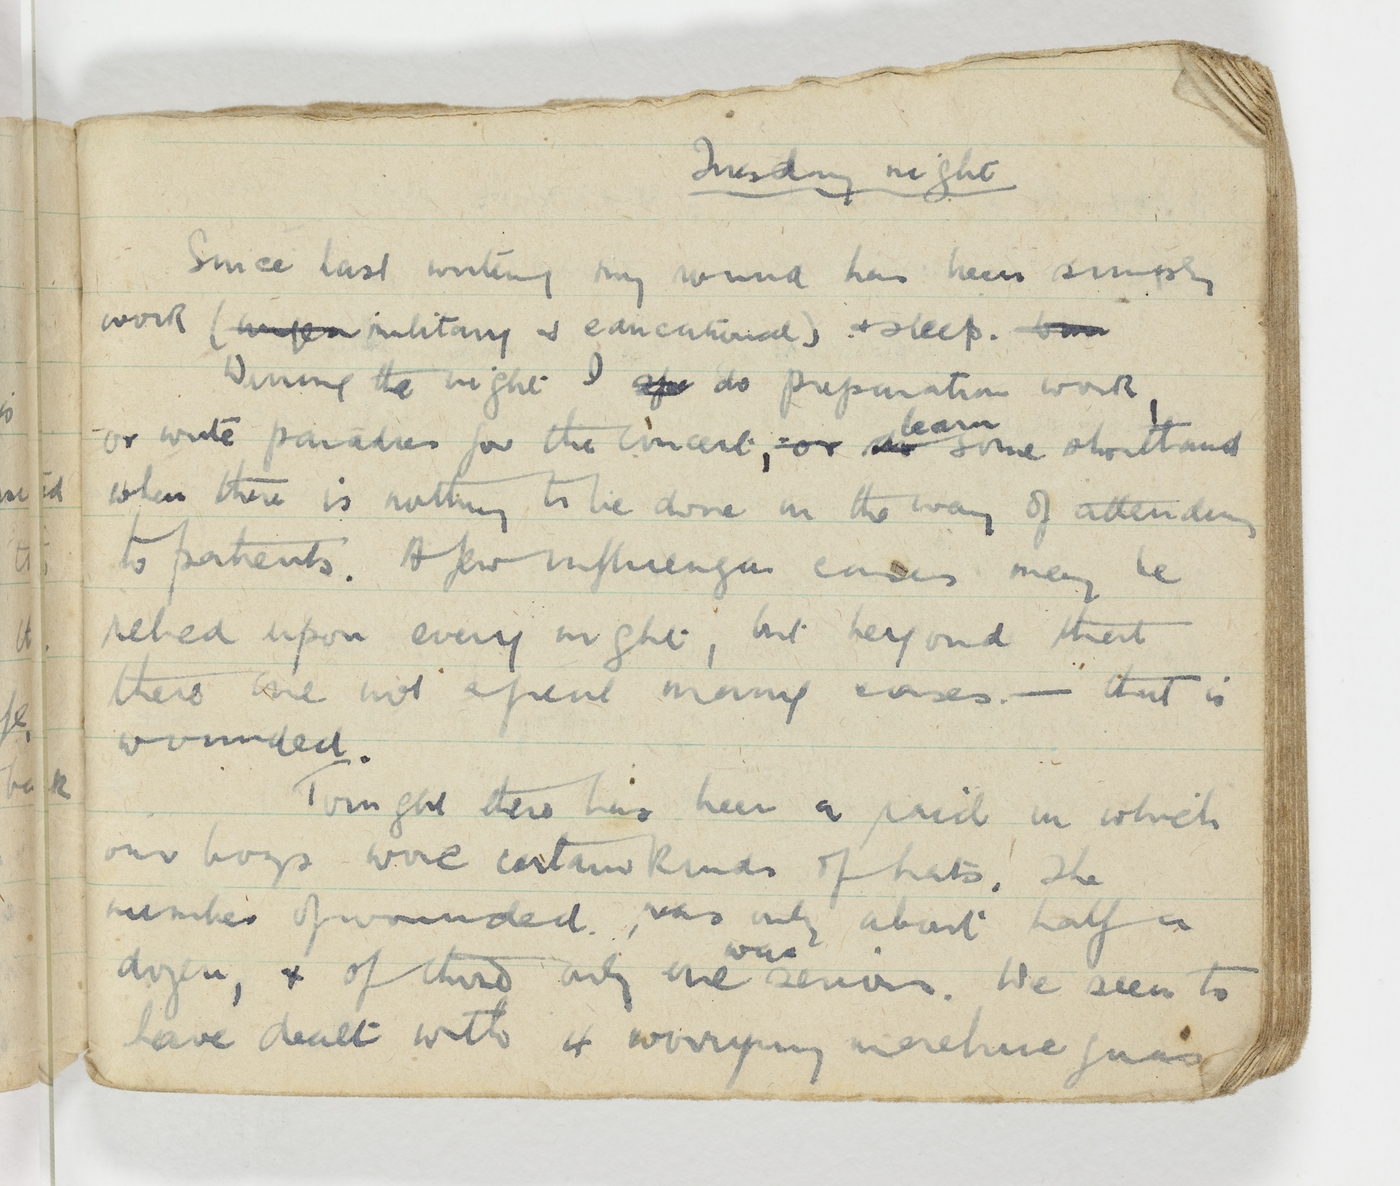 Tuesday night
Since last writing my round has been simply
work (military & educational) & sleep.
During the night I do preparation work,
or write parodies for the concert, or learn some shorthand
when there is nothing to be done in the way of attending
to patients. A few influenza cases may be
relied upon every night, but beyond that
there are not a great many cases — that is
wounded.
Tonight there has been a raid in which
our boys wore certain kinds of hats. The
number of wounded was only about half a
dozen, & of these only one was serious. We seem to
have dealt with 4 worrying machine guns